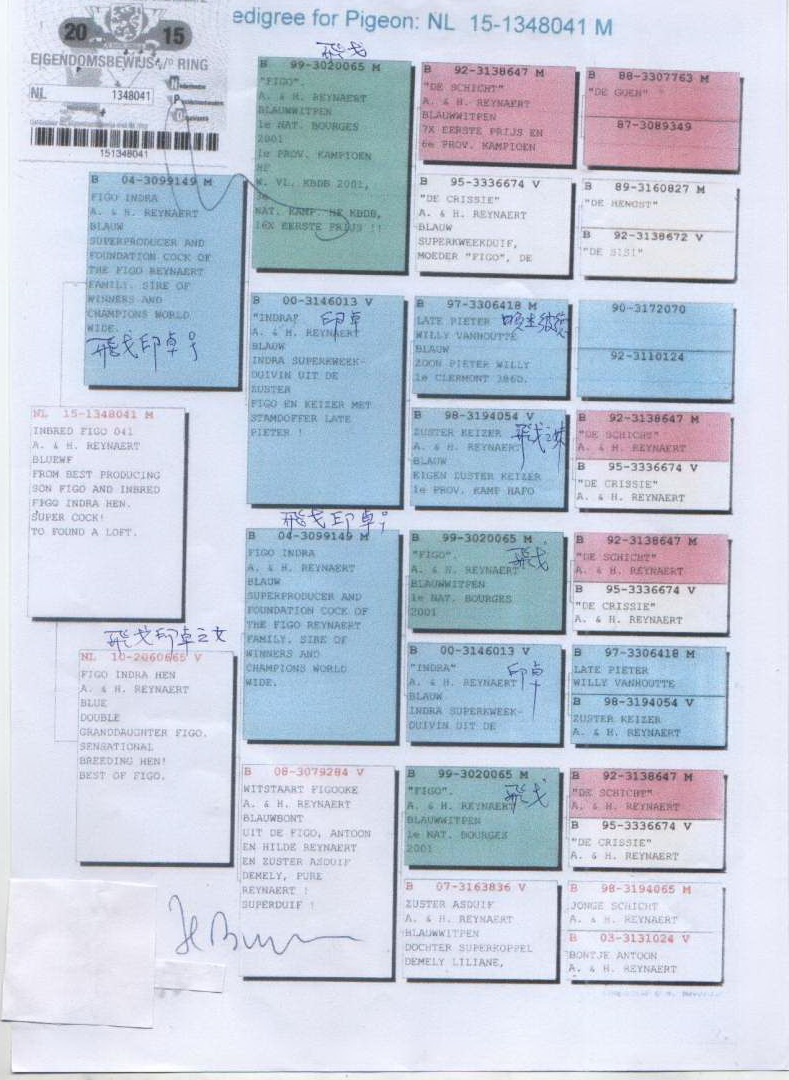 edigree for Pigeon: NL 15-1348041 M
20 15
EIGENDOMSBEWIJS V/D RING
NL 1348041
N
P
O
151348041
NL 15-1348041 M
INBRED FIGO 041
A. & H. REYNAERT
BLUEWF
FROM BEST PRODUCING
SON FIGO AND INBRED
FIGO INDRA HEN.
SUPER COCK!
TO FOUND A LOFT.
B 04-3099149 M
FIGO INDRA
A. & H. REYNAERT
BLAUW
SUPERPRODUCER AND
FOUNDATION COCK OF
THE FIGO REYNAERT
FAMILY. SIRE OF
WINNERS AND
CHAMPIONS WORLD
WIDE.
飛戈印卓号
飛戈印卓之女
NL 10-2060665 V
FIGO INDRA HEN
A. & H. REYNAERT
BLUE
DOUBLE
GRANDDAUGHTER FIGO.
SENSATIONAL
BREEDING HEN!
BEST OF FIGO.
飛戈
B 99-3020065 M
"FIGO".
A. & H. REYNAERT
BLAUWWITPEN
1e NAT. BOURGES
2001
1e PROV. KAMPIOEN
HF
W. VL. KBDB 2001,
3e
NAT. KAMP. HF KBDB,
16X EERSTE PRIJS !!
B 00-3146013 V
"INDRA" 印卓
A. & H. REYNAERT
BLAUW
INDRA SUPERKWEEK-
DUIVIN UIT DE
ZUSTER
FIGO EN KEIZER MET
STAMDOFFER LATE
PIETER !
飛戈印卓
B 04-3099149 M
FIGO INDRA
A. & H. REYNAERT
BLAUW
SUPERPRODUCER AND
FOUNDATION COCK OF
THE FIGO REYNAERT
FAMILY. SIRE OF
WINNERS AND
CHAMPIONS WORLD
WIDE.
B 08-3079284 V
WITSTAART FIGOOKE
A. & H. REYNAERT
BLAUWBONT
UIT DE FIGO, ANTOON
EN HILDE REYNAERT
EN ZUSTER ASDUIF
DEMELY, PURE
REYNAERT !
SUPERDUIF !
B 92-3138647 M
"DE SCHICHT"
A. & H. REYNAERT
BLAUWWITPEN
7X EERSTE PRIJS EN
6e PROV. KAMPIOEN
B 95-3336674 V
"DE CRISSIE"
A. & H. REYNAERT
BLAUW
SUPERKWEEKDUIF,
MOEDER "FIGO", DE
B 97-3306418 M
LATE PIETER
WILLY VANHOUTTE
BLAUW
ZOON PIETER WILLY
1e CLERMONT 386D.
B 98-3194054 V
ZUSTER KEIZER 飛戈之妹
A. & H. REYNAERT
BLAUW
EIGEN ZUSTER KEIZER
1e PROV. KAMP HAFO
B 99-3020065 M
"FIGO". 飛戈
A. & H. REYNAERT
BLAUWWITPEN
1e NAT. BOURGES
2001
B 00-3146013 V
"INDRA" 印卓
A. & H. REYNAERT
BLAUW
INDRA SUPERKWEEK-
DUIVIN UIT DE
B 99-3020065 M
"FIGO". 飛戈
A. & H. REYNAERT
BLAUWWITPEN
1e NAT. BOURGES
2001
B 07-3163836 V
ZUSTER ASDUIF
A. & H. REYNAERT
BLAUWWITPEN
DOCHTER SUPERKOPPEL
DEMELY LILIANE,
B 88-3307763 M
"DE GOEN"
87-3089349
B 89-3160827 M
"DE HENGST"
B 92-3138672 V
"DE SISI"
90-3172070
92-3110124
B 92-3138647 M
"DE SCHICHT"
A. & H. REYNAERT
B 95-3336674 V
"DE CRISSIE"
A. & H. REYNAERT
B 92-3138647 M
"DE SCHICHT"
A. & H. REYNAERT
B 95-3336674 V
"DE CRISSIE"
A. & H. REYNAERT
B 97-3306418 M
LATE PIETER
WILLY VANHOUTTE
B 98-3194054 V
ZUSTER KEIZER
A. & H. REYNAERT
B 92-3138647 M
"DE SCHICHT"
A. & H. REYNAERT
B 95-3336674 V
"DE CRISSIE"
A. & H. REYNAERT
B 98-3194065 M
JONGE SCHICHT
A. & H. REYNAERT
B 03-3131024 V
BONTJE ANTOON
A. & H. REYNAERT